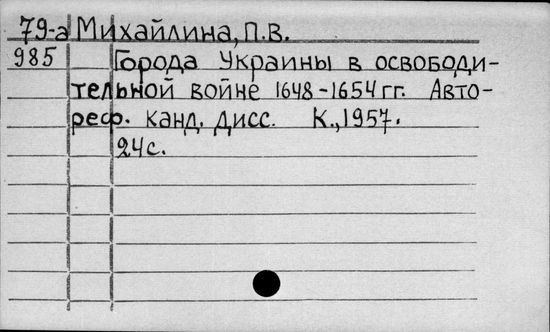 79-а Михайлина, П.В.
985 Города Украины в освободи-
тельной войне 1648-1654 гг. Авто-
реф. канд. дисс. К., 1957.
24 с.